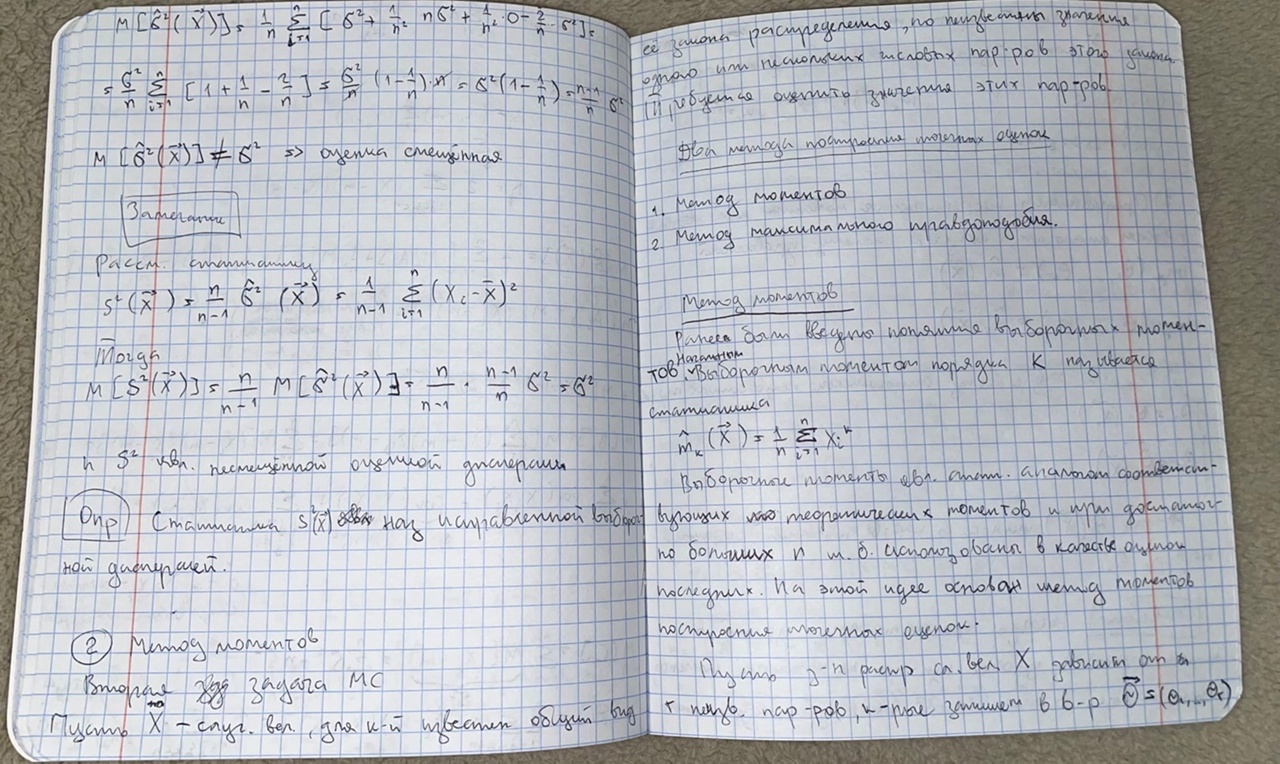 M[σ̂²(X⃗)] = 1/n Σ_{i=1}^{n} [σ² + 1/n² nσ² + 1/n² · 0 - 2/n · σ²] =
= σ²/n Σ_{i=1}^{n} [1 + 1/n - 2/n] = σ²/n (1 - 1/n) · n = σ²(1 - 1/n) = (n-1)/n σ²
M[σ̂²(X⃗)] ≠ σ² => оценка смещённая
Замечание
Рассм. статистику
S²(X⃗) = n/(n-1) σ̂²(X⃗) = 1/(n-1) Σ_{i=1}^{n} (X_i - X̄)²
Тогда
M[S²(X⃗)] = n/(n-1) M[σ̂²(X⃗)] = n/(n-1) · (n-1)/n σ² = σ²
и S² явл. несмещённой оценкой дисперсии
Опр Статистика S²(X⃗) наз исправленной выбороч
ной дисперсией.
2 Метод моментов
Вторая задача МС
Пусть X - случ. вел., для к-й известен общий вид
её закона распределения, но неизвестны значения
одного или нескольких числовых пар-ров этого закона.
Требуется оценить значения этих пар-ров.
Два метода построение точечных оценок
1. Метод моментов
2. Метод максимального правдоподобия.
Метод моментов
Ранее были введены понятия выборочных момен-
тов. Начальным выборочным моментом порядка K называется
статистика
m̂_k(X⃗) = 1/n Σ_{i=1}^{n} X_i^k
Выборочные моменты явл. стат. аналогом соответст-
вующих теоретических моментов и при достаточ-
но больших n м.б. использованы в качестве оценок
последних. На этой идее основан метод моментов
построения точечных оценок.
Пусть з-н распр сл. вел. X зависит от
r неизв. пар-ров, к-рые запишем в в-р θ⃗ = (θ₁,..., θ_r)